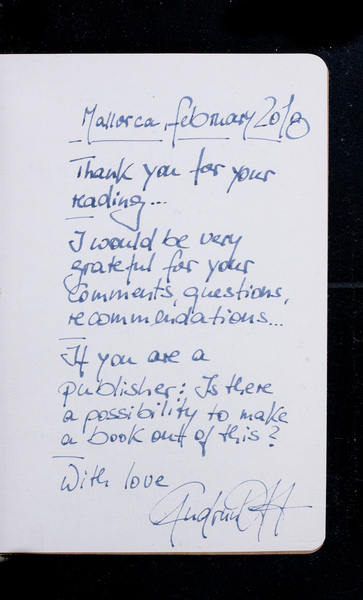 Mallorca, february 2018
Thank you for your
reading...
I would be very
grateful for your
comments, questions,
recommendations...
If you are a
publisher: Is there
a possibility to make
a book out of this?
With love